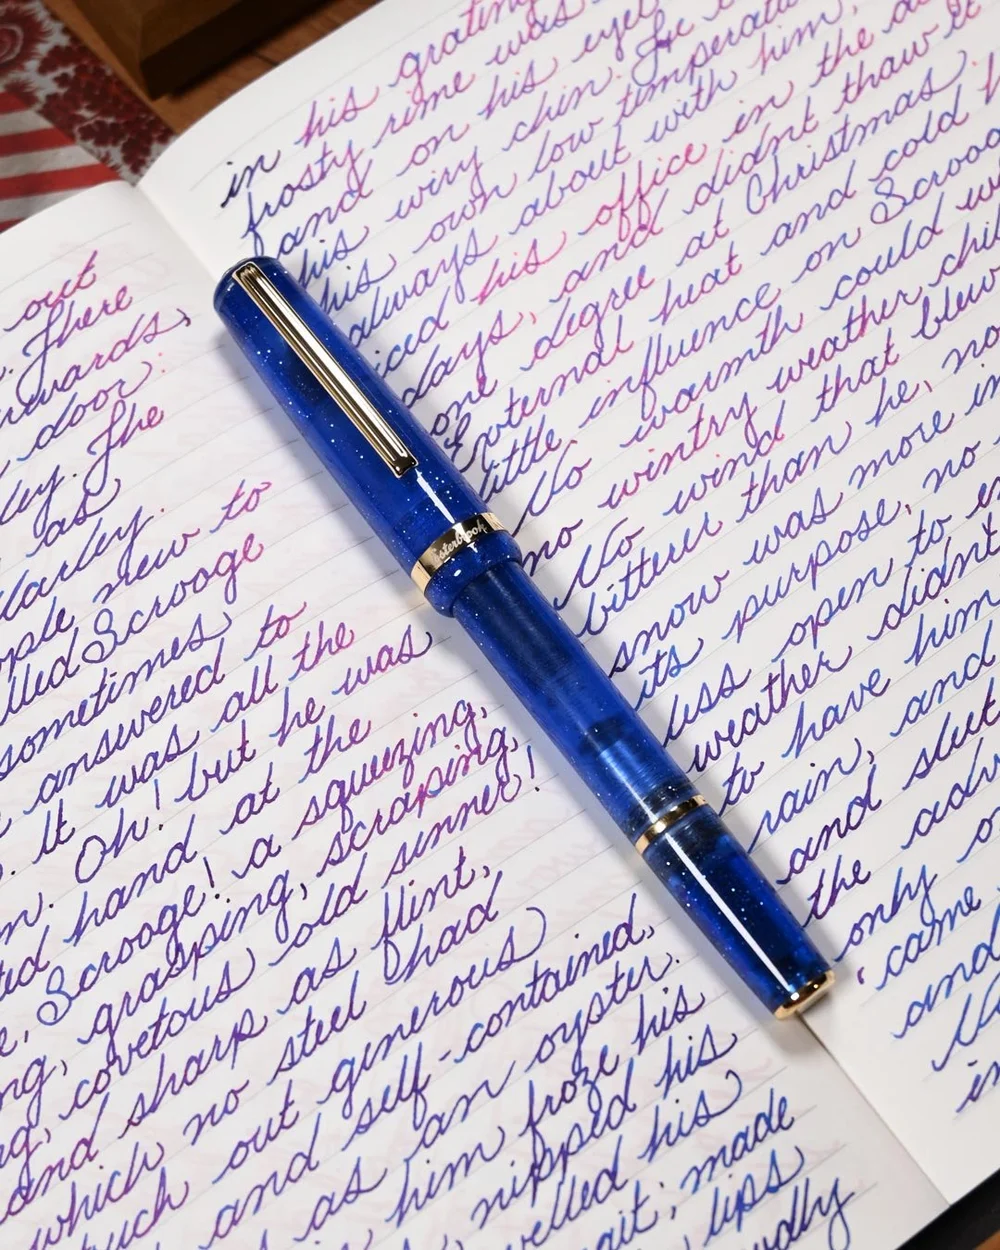 out
. There
wards,
door.
ley. The
as
Marley.
ople new to
lled Scrooge
sometimes
answered to
It was all the
Oh! but he was
ted hand at the
Scrooge! a squeezing,
ng, grasping, scraping,
covetous old sinner!
and sharp as flint,
which no steel had
uck out generous
and self-contained,
as an oyster.
him froze his
nipped his
velled his
ait; made
lips
wdly
grating
in his rime was
frosty on his eyebr
and wiry chin. He
his own low temperatu
always about with him,
iced his office in the
days, and didnt thaw it
one degree at Christmas
External heat and cold h
little influence on Scroog
No warmth could wa
no wintry weather chil
No wind that blew
bitterer than he, no
snow was more in
its purpose, no
less open to en
weather didnt
to have him
rain, and
and sleet
the adv
only o
came
and
in
Esterbrook